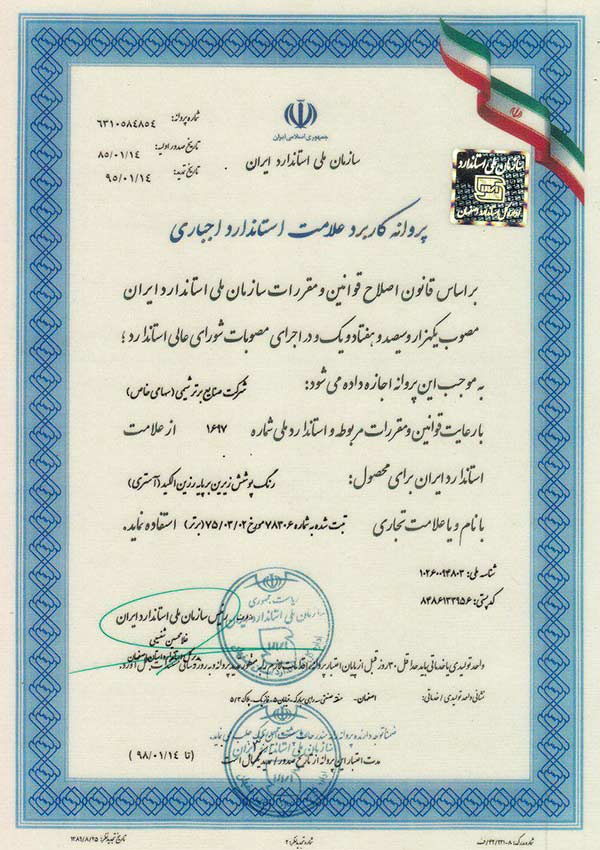 جمهوری اسلامی ایران
سازمان ملی استاندارد ایران
شماره پروانه: ۶۳۱۰۵۸۴۸۵۴
تاریخ صدور اولیه: ۸۵/۰۱/۱۴
تاریخ تمدید: ۹۵/۰۱/۱۴
سازمان ملی استاندارد
پروانه کاربرد علامت استاندارد اجباری
بر اساس قانون اصلاح قوانین و مقررات سازمان ملی استاندارد ایران
مصوب یکهزار و سیصد و هفتاد و یک و در اجرای مصوبات شورای عالی استاندارد؛
به موجب این پروانه اجازه داده می شود: شرکت صنایع برتر شیمی (سهامی خاص)
با رعایت قوانین و مقررات مربوطه و استاندارد ملی شماره ۱۶۹۷ از علامت
استاندارد ایران برای محصول: رنگ پوشش زیرین بر پایه رزین الکید (آستری)
با نام و یا علامت تجاری ثبت شده به شماره ۷۸۳۰۶ مورخ ۷۵/۰۳/۰۲ (برتر) استفاده نماید.
شناسه ملی: ۱۰۲۶۰۰۹۴۸۰۳
کد پستی: ۸۴۸۶۱۳۳۹۵۶
رئیس سازمان ملی استاندارد ایران
غلامحسین شفیعی
واحد تولیدی یا خدماتی باید حداقل ۳۰ روز قبل از پایان اعتبار پروانه
نشانی واحد تولیدی / خدماتی: اصفهان - منطقه صنعتی
مدت اعتبار این پروانه از تاریخ صدور / تمدید یکسال است (تا ۹۸/۰۱/۱۴)
تاریخ تجدید نظر: ۱۳۸۹/۸/۲۵
شماره تجدید نظر: ۲